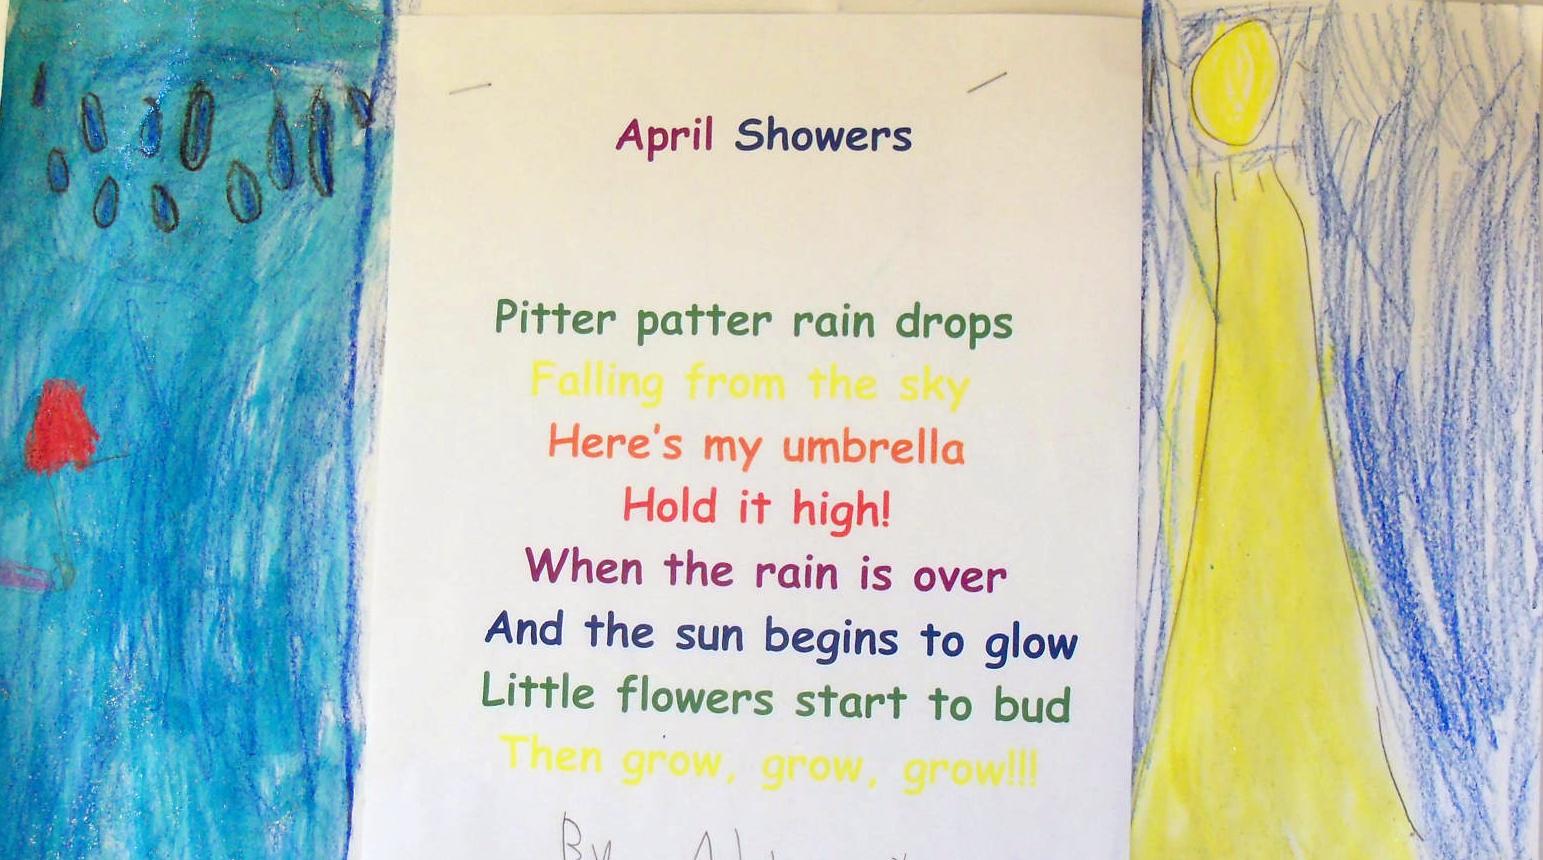 April Showers
Pitter patter rain drops
Falling from the sky
Here's my umbrella
Hold it high!
When the rain is over
And the sun begins to glow
Little flowers start to bud
Then grow, grow, grow!!!
By